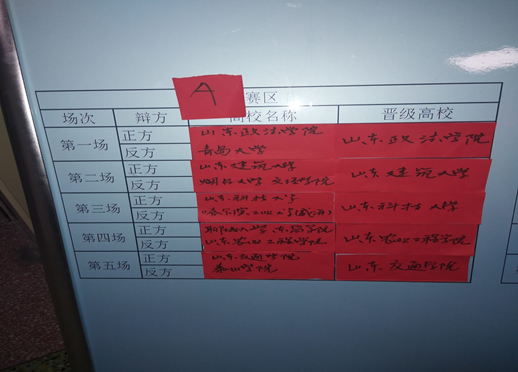 A 赛区
场次 辩方 高校名称 晋级高校
第一场 正方 山东政法学院 山东政法学院
反方 青岛大学
第二场 正方 山东建筑大学 山东建筑大学
反方 烟台大学文经学院
第三场 正方 山东科技大学 山东科技大学
反方 哈尔滨工业大学(威海)
第四场 正方 聊城大学东昌学院 山东农业工程学院
反方 山东农业工程学院
第五场 正方 山东交通学院 山东交通学院
反方 泰山学院